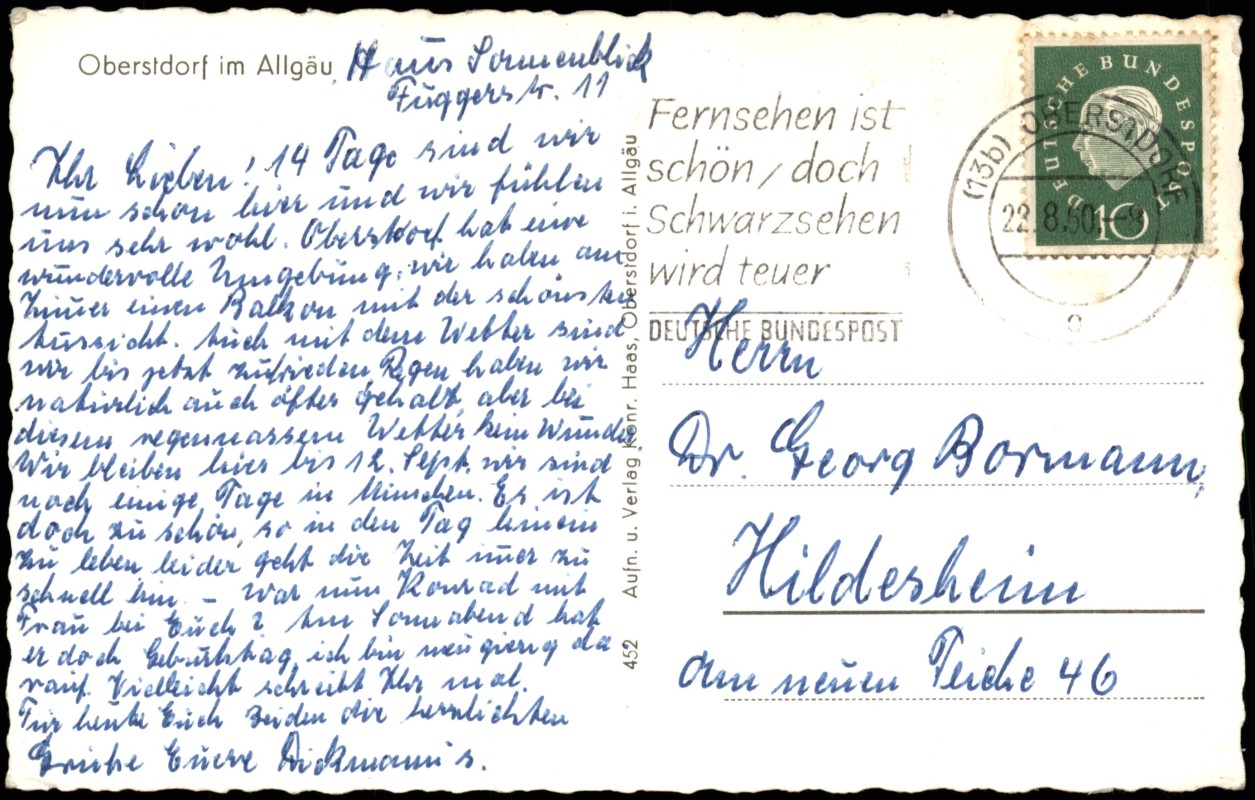 Oberstdorf im Allgäu
Haus Sonnenblick
Fuggerstr. 11
Ihr Lieben! 14 Tage sind wir
nun schon hier und wir fühlen
uns sehr wohl. Oberstdorf hat eine
wundervolle Umgebung, wir haben am
Zimer einen Balkon mit der schönsten
Aussicht. Auch mit dem Wetter sind
wir bis jetzt zufrieden Regen haben wir
natürlich auch öfter gehabt, aber bei
diesem regennassem Wetter kein Wunder.
Wir bleiben hier bis 12. Sept. wir sind
noch einige Tage in München. Es ist
doch zu schön, so in den Tag hinein
zu leben, leider geht die Zeit imer zu
schnell hin. – War nun Konrad mit
Frau bei Euch? Am Sonnabend hat
er doch Geburtstag, ich bin neugierig da
rauf. Vielleicht schreibt Ihr mal.
Für heute Euch beiden die herzlichsten
Grüße Euere Dickmann's.
452 Aufn. u. Verlag Konr. Haas, Oberstdorf i. Allgäu
Fernsehen ist
schön / doch
Schwarzsehen
wird teuer
DEUTSCHE BUNDESPOST
(13b) OBERSTDORF
22.8.60.-8
a
DEUTSCHE BUNDESPOST
10
Herrn
Dr. Georg Bormann,
Hildesheim
Am neuen Teiche 46